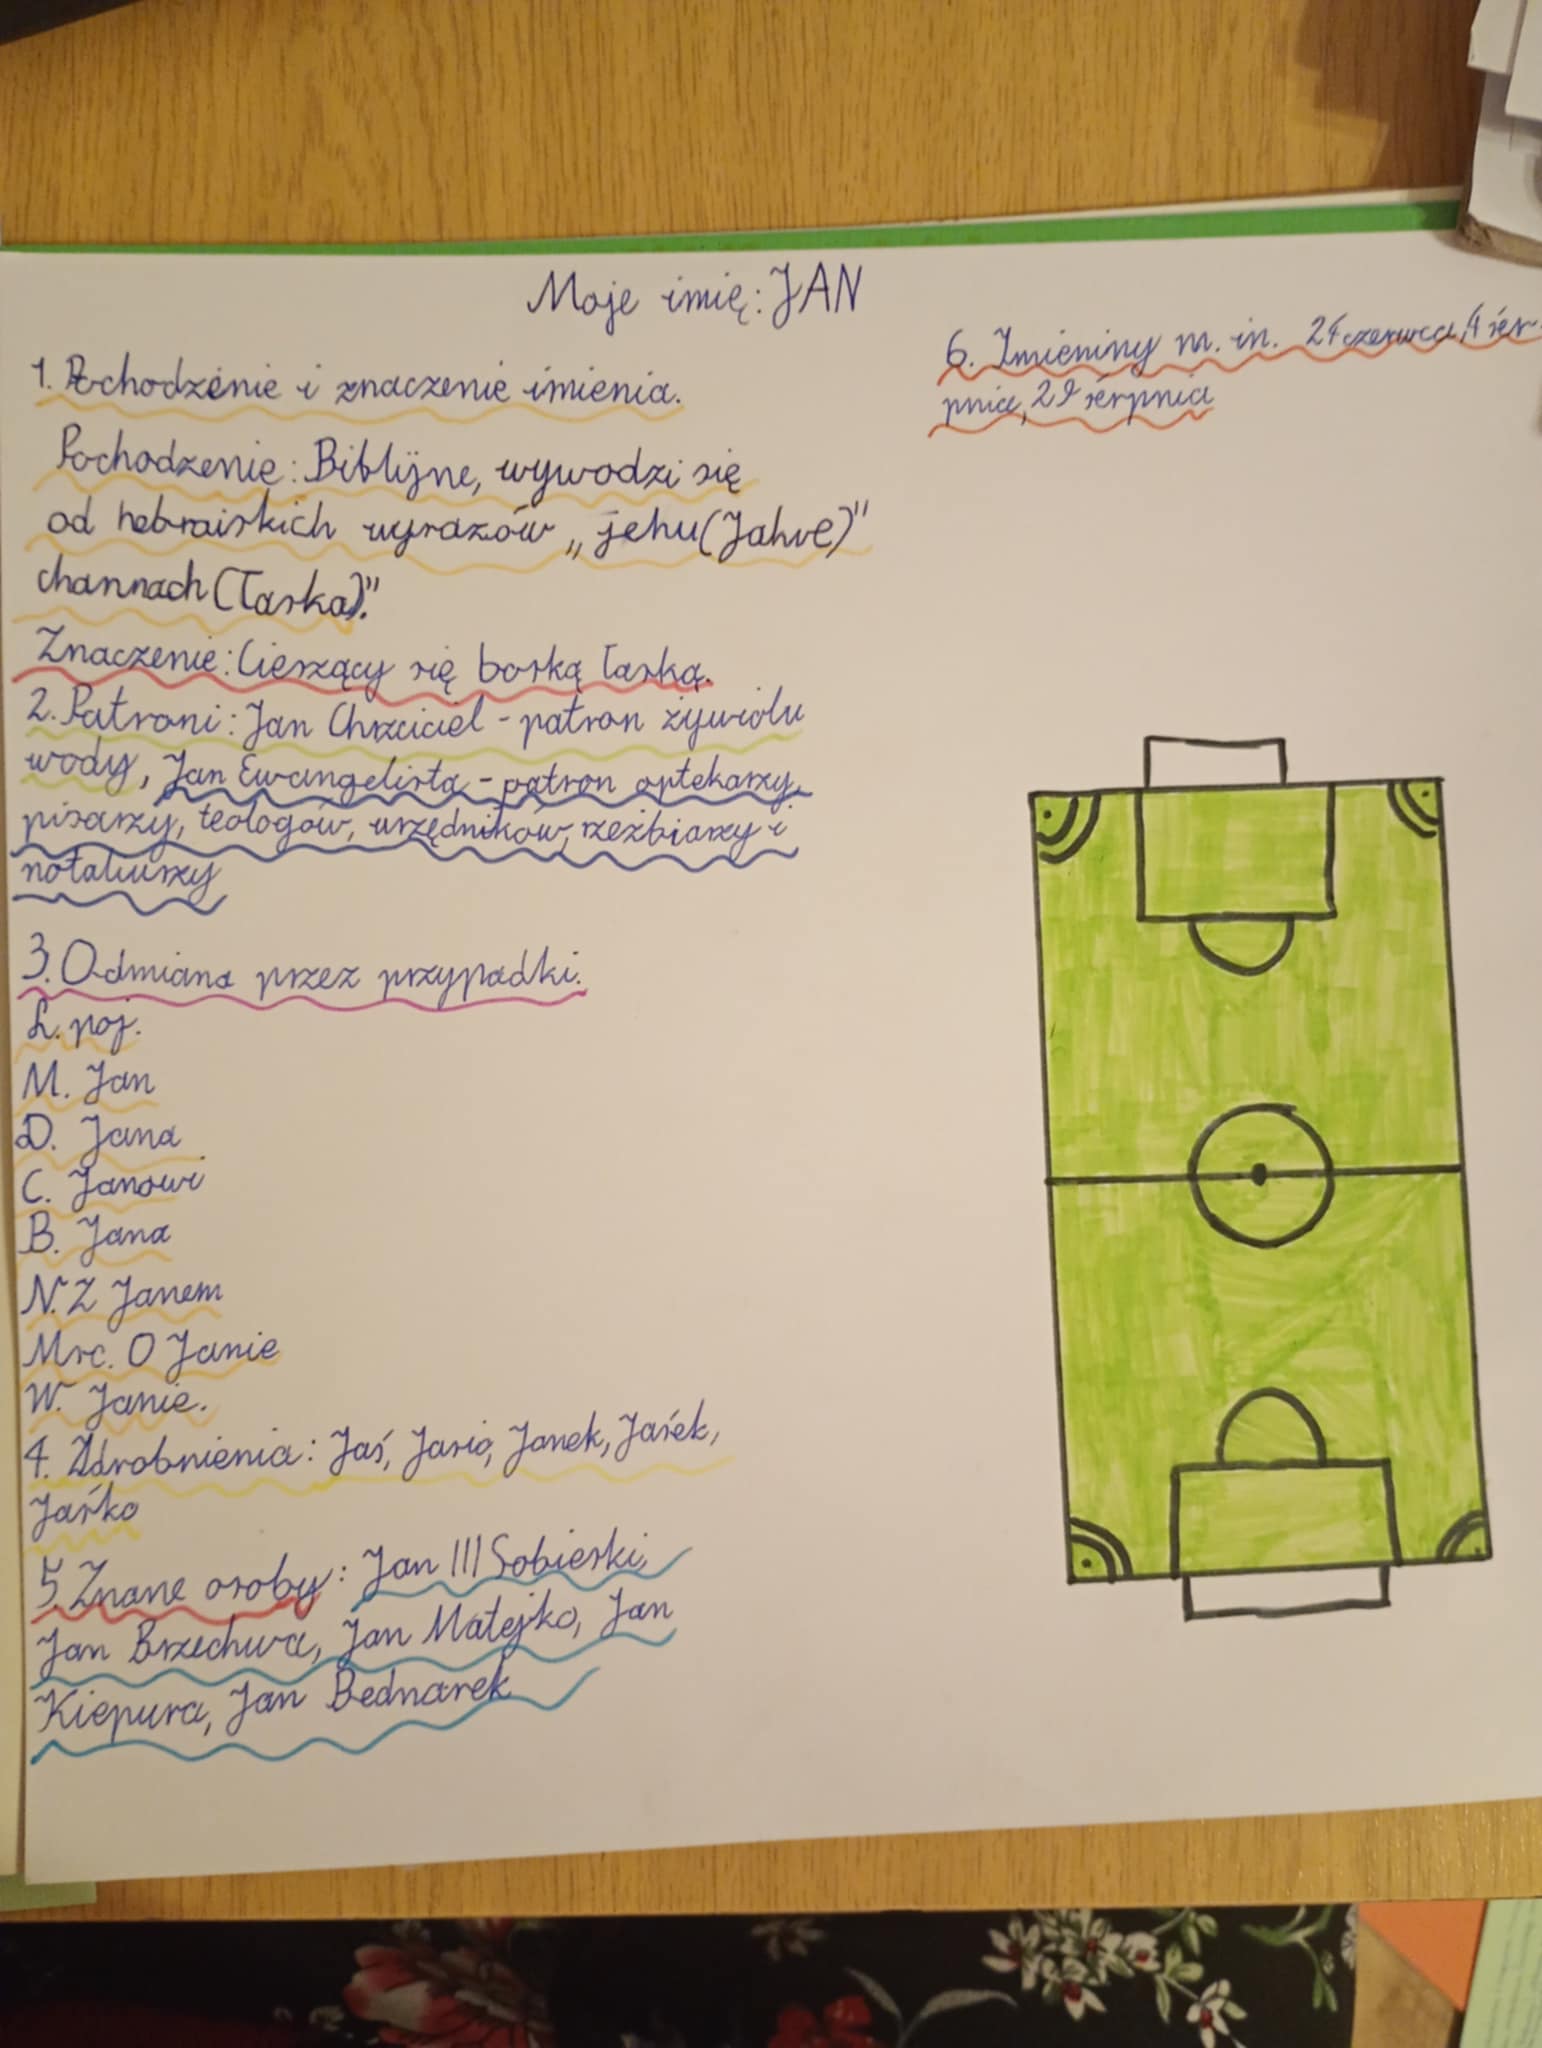 Moje imię: JAN
1. Pochodzenie i znaczenie imienia.
Pochodzenie: Biblijne, wywodzi się
od hebraiskich wyrazów „jehu (Jahve)"
channach (Łaska)."
Znaczenie: Cieszący się boską łaską.
2. Patroni: Jan Chrzciciel - patron żywiołu
wody, Jan Ewangelista - patron aptekarzy,
pisarzy, teologów, urzędników, rzeźbiarzy i
notariuszy
3. Odmiana przez przypadki.
L. poj.
M. Jan
D. Jana
C. Janowi
B. Jana
N. Z Janem
Msc. O Janie
W. Janie.
4. Zdrobnienia: Jaś, Jasio, Janek, Jasiek,
Jaśko
5. Znane osoby: Jan III Sobieski,
Jan Brzechwa, Jan Matejko, Jan
Kiepura, Jan Bednarek
6. Imieniny m. in. 24 czerwca, 4 sier-
pnia, 29 sierpnia